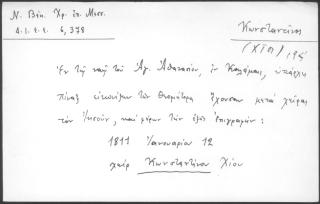 Ν. Βέη. Χρ. ἐπ. Μεσσ.
Δ.Ι.Ε.Ε. 6, 378
Κωνσταντῖνος
(Χῖος) 195
Ἐν τῷ ναῷ τοῦ Ἁγ. Ἀθανασίου, ἐν Καλάμαις, ὑπάρχει
πίναξ εἰκονίζων τὴν Θεομήτορα ἔχουσαν μετὰ χεῖρας
τὸν Ἰησοῦν, καὶ φέρων τὴν ἑξῆς ἐπιγραφήν:
1811 Ἰανουαρίου 12
χείρ Κωνσταντίνου Χίου